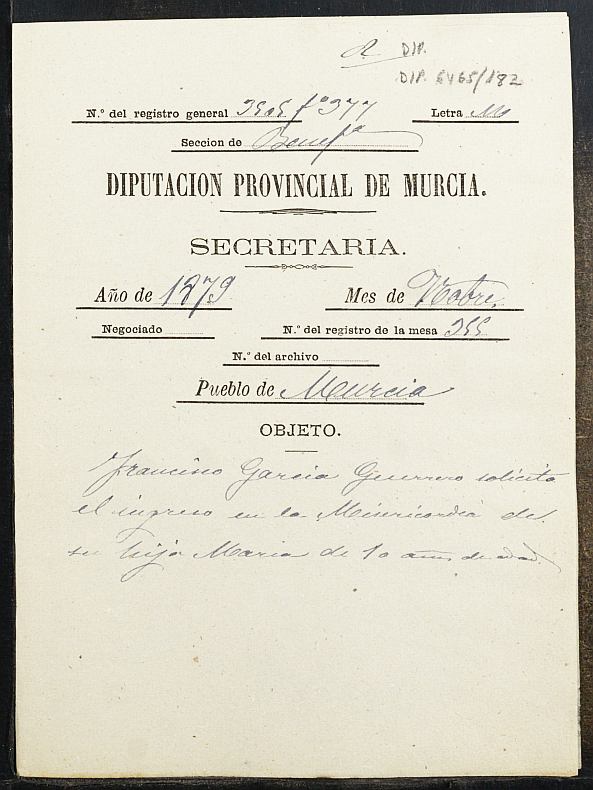 DIP.
DIP. 6465/182
N.º del registro general 3505 fº 377 Letra M
Seccion de Benefª
DIPUTACION PROVINCIAL DE MURCIA.
SECRETARIA.
Año de 1879 Mes de Nobre.
Negociado N.º del registro de la mesa 355
N.º del archivo
Pueblo de Murcia
OBJETO.
Francisco Garcia Guerrero solicita
el ingreso en la Misericordia de
su hija Maria de 10 años de edad.